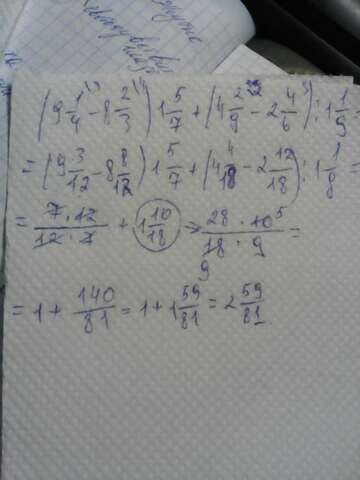 (9 1/4 - 8 2/3) 1 5/7 + (4 2/9 - 2 4/6) : 1 1/9 =
= (9 3/12 - 8 8/12) 1 5/7 + (4 4/18 - 2 12/18) : 1 1/8 =
= 7 · 12 / 12 · 7 + 1 10/18 => 28 · 10 5 / 18 · 9 =
9
= 1 + 140/81 = 1 + 1 59/81 = 2 59/81